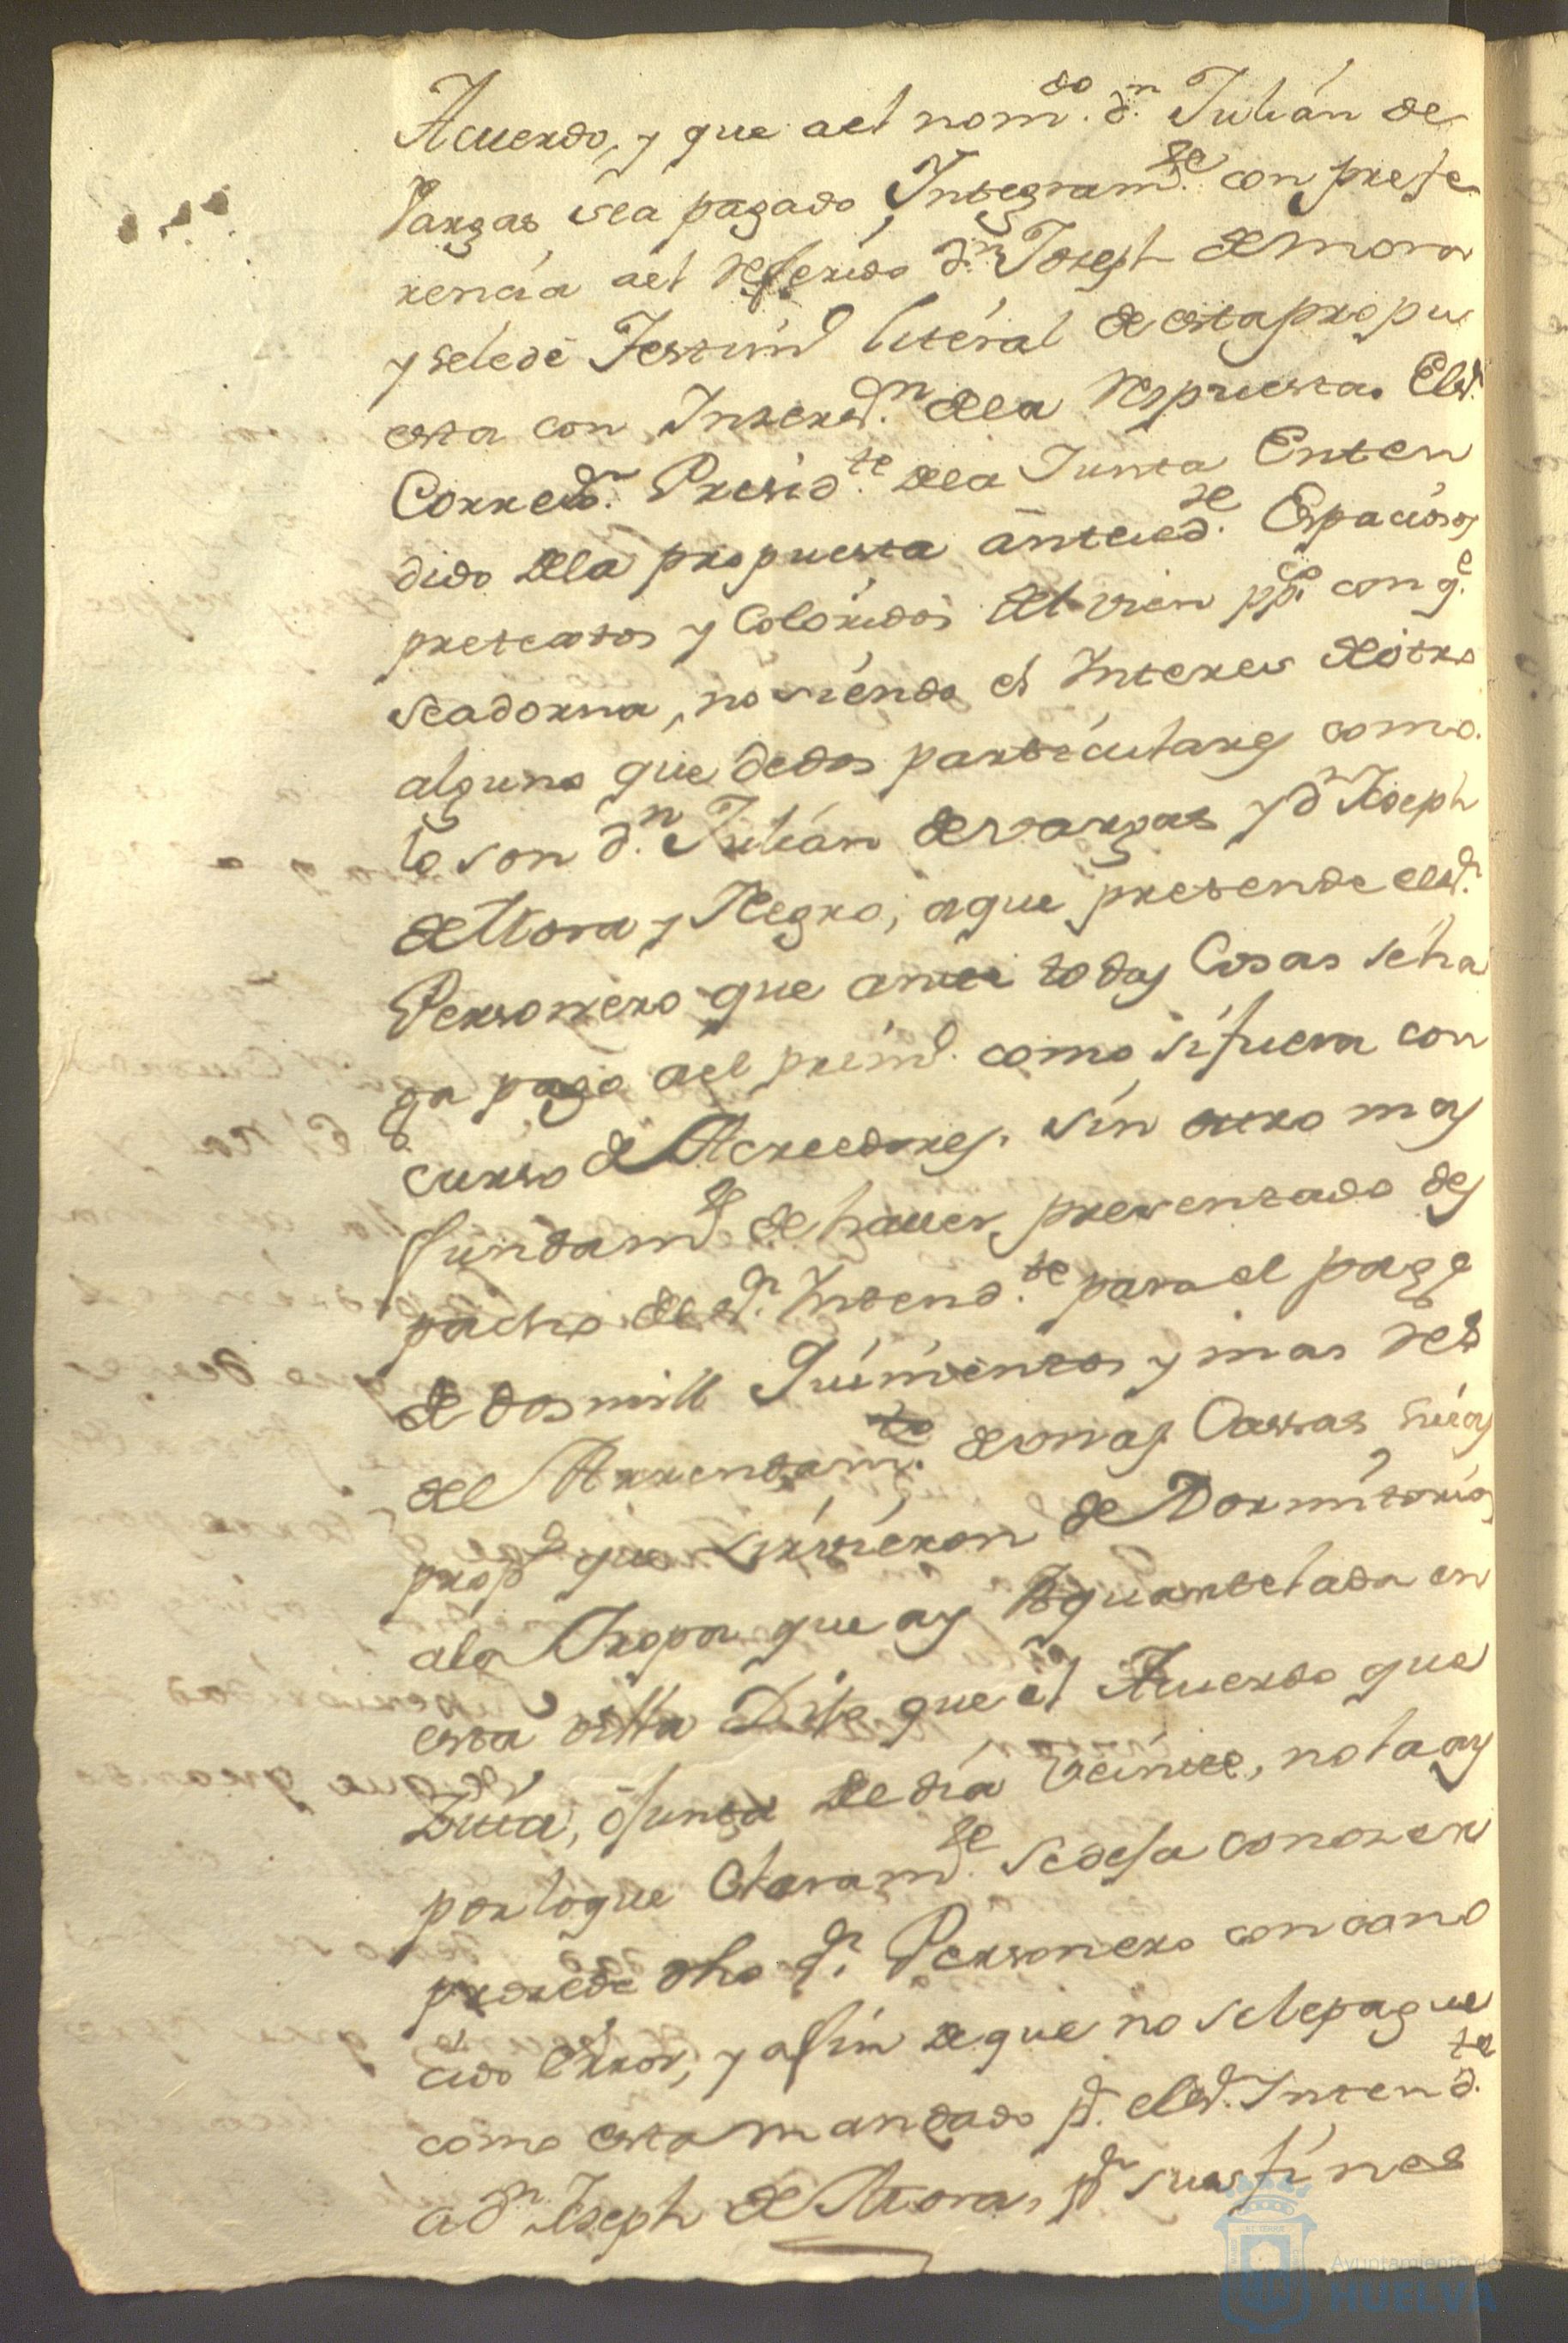 Acuerdo, y que ael nom.do d.n Julián de
Vargas sea pagado Integram.te con prefe
rencia ael referido d.n Joseph de Mora
y sele dé Testim.o literal de esta propu
esta con Inserz.n dela respuesta. El s.r
Correx.r Presid.te dela Junta Enten
dido dela propuesta anteced.te Espaciosos
pretextos y Coloridos del vien pp.co con q.e
seadorna, no siendo el Interes de otro
alguno que dedos particulares como
lo son d.n Julián de Vargas y d.n Joseph
de Mora y Negro, aque pretende el s.r
Personero que ante todas Cosas seha
ga pago ael prim.o como si fuera con
curso de Acreedores, sin otro mas
fundam.to de haver presentado des
pacho del s.r Intend.te para el pago
de dos mill Quinientos y mas r.s
del Arrendam.to de unas Cassas suias
prop.s que sirvieron de Dormitorios
ala Tropa que ay Aquartelada en
esta villa Dijo que el Acuerdo que
Zitta, ó Junta de dia veinte, no la ay
por loque Claram.te sedeja conozer
prozede dho s.r Personero con cono
cido Error, y afin de que no sele pague
como esta mandado p.r el s.r Intend.te
a d.n Joseph de Mora, p.r sus fines
Ayuntamiento de
HUELVA